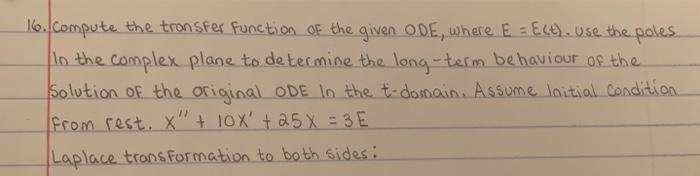 16. Compute the transfer function of the given ODE, where E = E(t). Use the poles
In the complex plane to determine the long-term behaviour of the
Solution of the original ODE In the t-domain. Assume Initial Condition
From rest. x'' + 10x' + 25x = 3E
Laplace transformation to both sides: